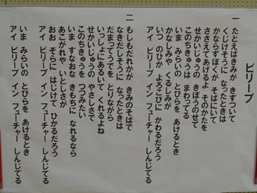 ビリーブ
一
たとえばきみが きずついて
くじけそうに なったときは
かならずぼくが そばにいて
ささえてあげるよ そのかたを
せかいじゅうの きぼうのせて
このちきゅうは まわってる
いま みらいの とびらを あけるとき
かなしみや くるしみが
いつのひか よろこびに かわるだろう
アイ ビリーブ イン フューチャー しんじてる
二
もしもだれかが きみのそばで
なきだしそうに なったときは
だまってうでを とりながら
いっしょにあるいて くれるよね
せかいじゅうの やさしさで
このちきゅうを つつみたい
いま すなおな きもちに なれるなら
あこがれや いとしさが
おおぞらに はじけて ひかるだろう
アイ ビリーブ イン フューチャー しんじてる
いま みらいの とびらを あけるとき
アイ ビリーブ イン フューチャー しんじてる